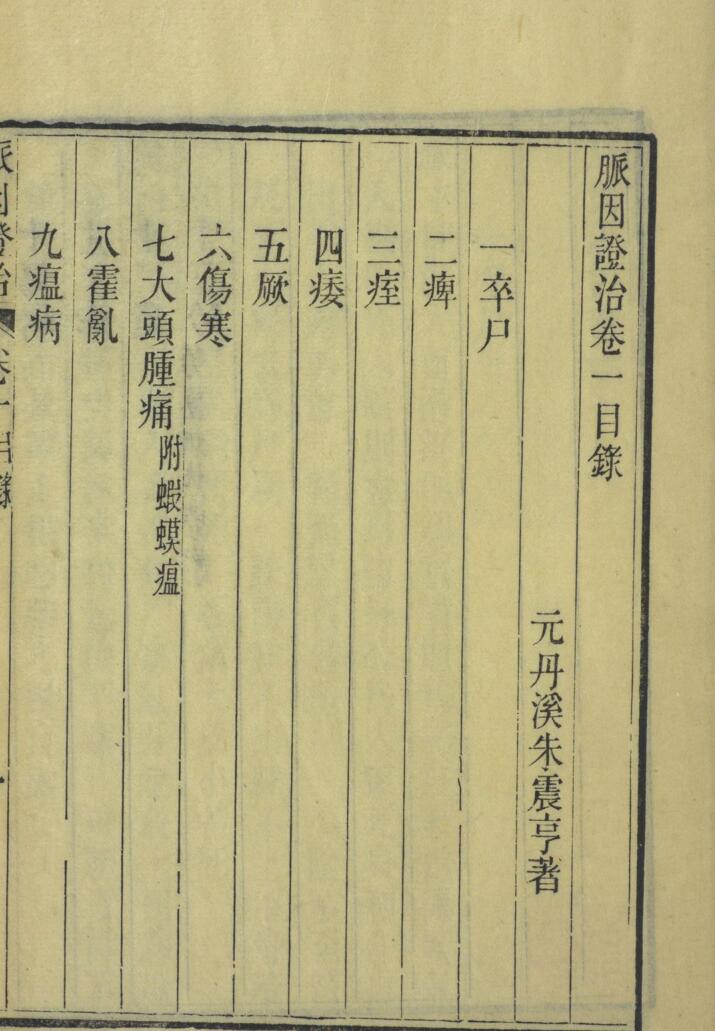 脈因證治卷一目錄
元丹溪朱震亨著
一卒尸
二痺
三痓
四痿
五厥
六傷寒
七大頭腫痛附蝦蟆瘟
八霍亂
九瘟病
脈因證治 卷一目錄